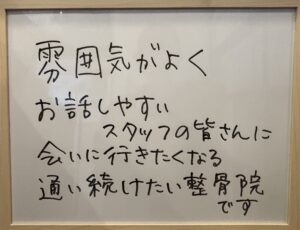 雰囲気がよく
お話しやすい
スタッフの皆さんに
会いに行きたくなる
通い続けたい整骨院
です